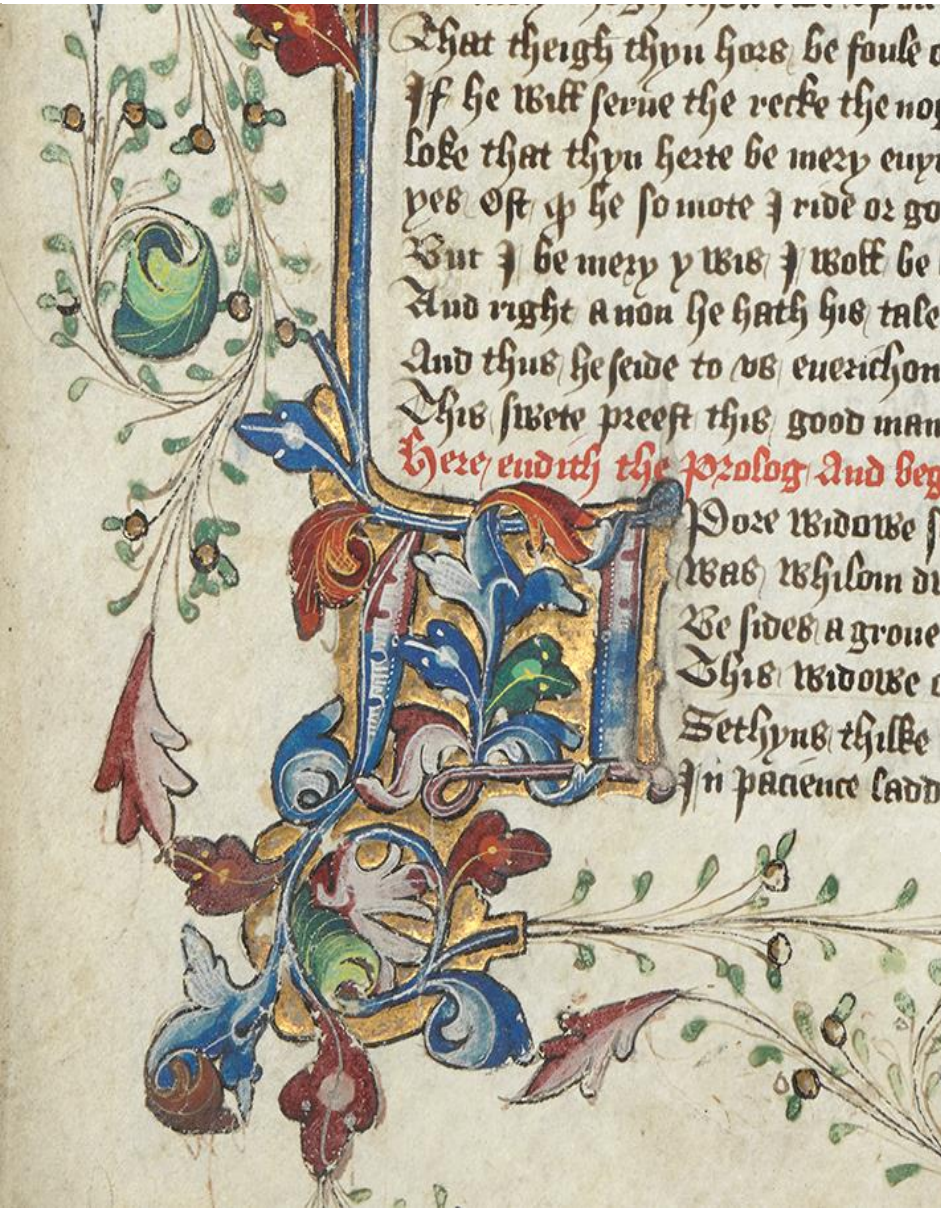 That theigh thyn hors be foule
If he will serue the recke the
loke that thyn herte be mery
yes Ost he so mote I ride or go
But I be mery y wis I woll be
And right a non he hath his tale
And thus he seide to vs euerichon
This swete preest this good man
Here endith the Prolog And beg
A
Pore widowe
Was whilom
Be sides a groue
This widowe
Sethyns thilke
In pacience ladd